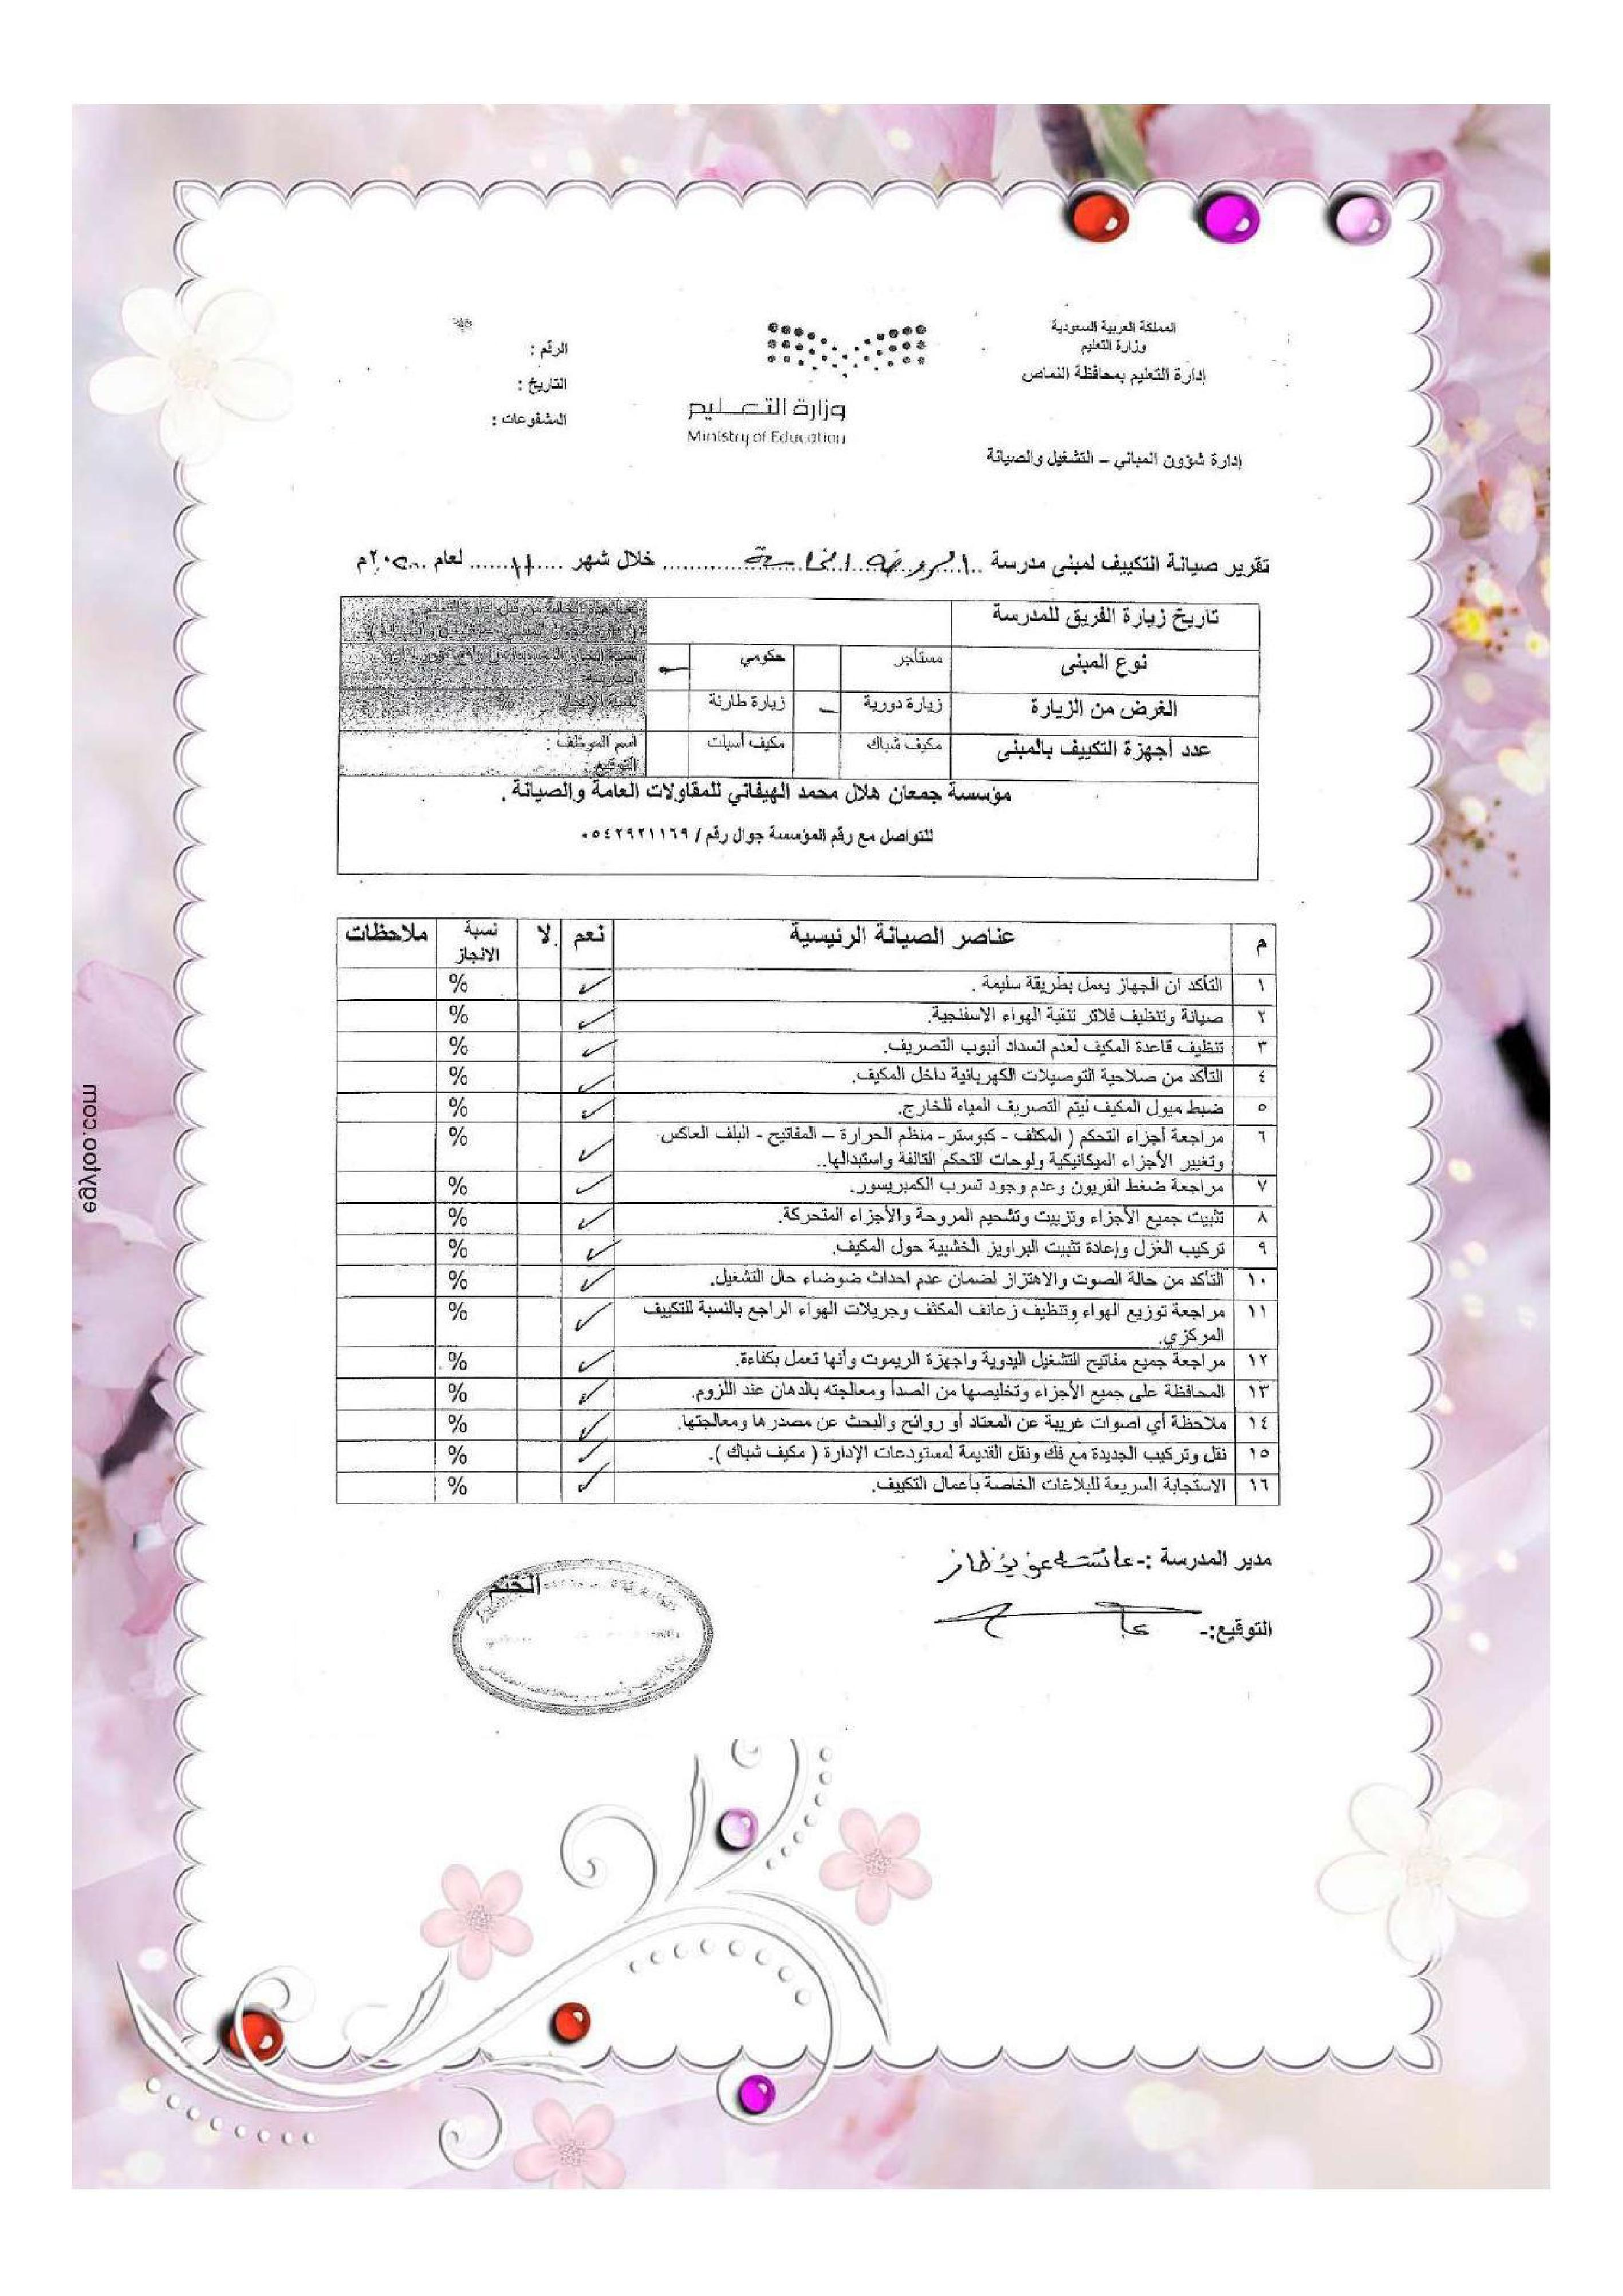 المملكة العربية السعودية
وزارة التعليم
إدارة التعليم بمحافظة النماص
إدارة شؤون المباني – التشغيل والصيانة
وزارة التعليم
Ministry of Education
الرقم :
التاريخ :
المشفوعات :
تقرير صيانة التكييف لمبنى مدرسة الروضة الخامسة خلال شهر ١١ لعام م
تاريخ زيارة الفريق للمدرسة
نوع المبنى مستأجر حكومي
الغرض من الزيارة زيارة دورية زيارة طارئة
عدد أجهزة التكييف بالمبنى مكيف شباك مكيف أسبلت
اسم الموظف :
التوقيع :
مؤسسة جمعان هلال محمد الهيفاني للمقاولات العامة والصيانة .
للتواصل مع رقم المؤسسة جوال رقم / ٠٥٤٢٩٢١١٦٩
م عناصر الصيانة الرئيسية نعم لا نسبة الانجاز ملاحظات
١ التأكد ان الجهاز يعمل بطريقة سليمة . ✓ %
٢ صيانة وتنظيف فلاتر تنقية الهواء الاسفنجية. ✓ %
٣ تنظيف قاعدة المكيف لعدم انسداد أنبوب التصريف. ✓ %
٤ التأكد من صلاحية التوصيلات الكهربائية داخل المكيف. ✓ %
٥ ضبط ميول المكيف ليتم التصريف المياه للخارج. ✓ %
٦ مراجعة أجزاء التحكم ( المكثف - كبوستر- منظم الحرارة – المفاتيح - البلف العاكس ✓ %
وتغيير الأجزاء الميكانيكية ولوحات التحكم التالفة واستبدالها..
٧ مراجعة ضغط الفريون وعدم وجود تسرب الكمبريسور. ✓ %
٨ تثبيت جميع الأجزاء وتزييت وتشحيم المروحة والأجزاء المتحركة. ✓ %
٩ تركيب الغزل وإعادة تثبيت البراويز الخشبية حول المكيف. ✓ %
١٠ التأكد من حالة الصوت والاهتزاز لضمان عدم احداث ضوضاء حال التشغيل. ✓ %
١١ مراجعة توزيع الهواء وتنظيف زعانف المكثف وجريلات الهواء الراجع بالنسبة للتكييف ✓ %
المركزي.
١٢ مراجعة جميع مفاتيح التشغيل اليدوية واجهزة الريموت وأنها تعمل بكفاءة. ✓ %
١٣ المحافظة على جميع الأجزاء وتخليصها من الصدأ ومعالجته بالدهان عند اللزوم. ✓ %
١٤ ملاحظة أي اصوات غريبة عن المعتاد أو روائح والبحث عن مصدرها ومعالجتها. ✓ %
١٥ نقل وتركيب الجديدة مع فك ونقل القديمة لمستودعات الإدارة ( مكيف شباك ). ✓ %
١٦ الاستجابة السريعة للبلاغات الخاصة بأعمال التكييف. ✓ %
مدير المدرسة :- عائشه
التوقيع:-
الختم
egyfoo.com